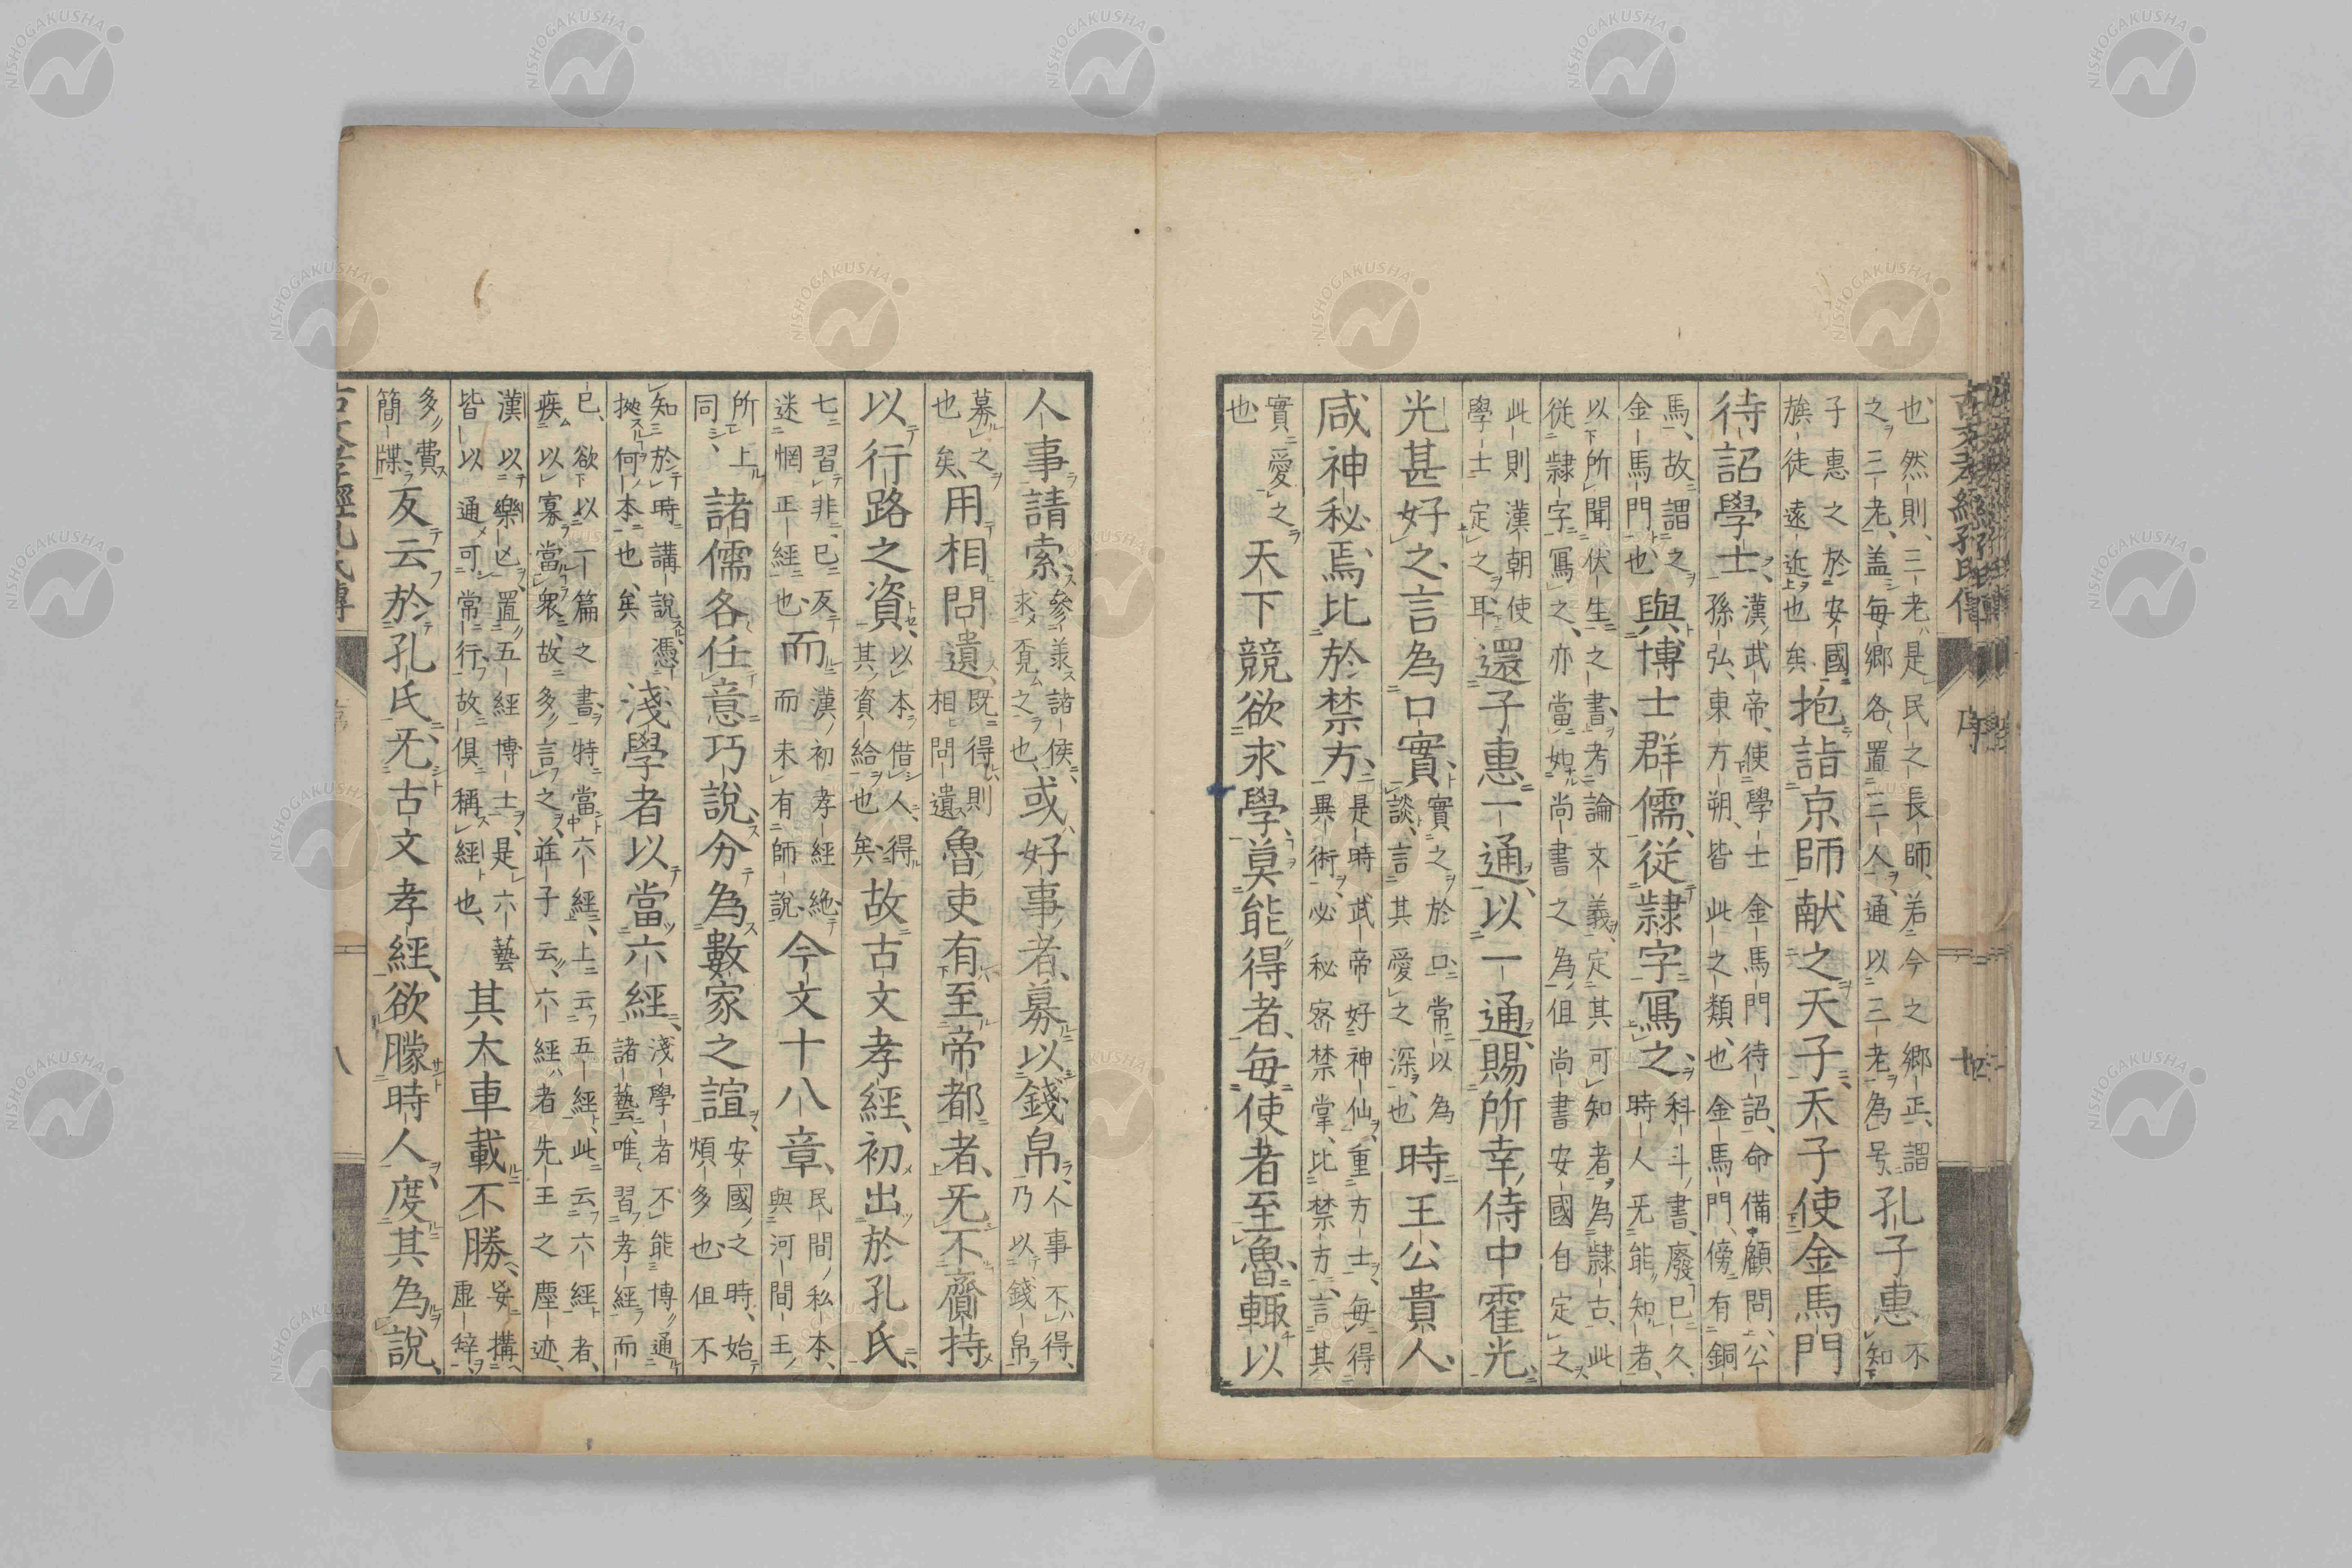 也然則三老是民之長師若今之鄉正謂
之三老盖每鄉各置三人通以三老為号孔子惠不知
子惠之於安國
旄徒遠近也矣抱詣京師献之天子天子使金馬門
待詔學士漢武帝使學士金馬門待詔命備顧問公
孫弘東方朔皆此之類也金馬門傍有銅
馬故謂之
金馬門也與博士群儒從隷字寫之科斗書廢已久
時人旡能知者
以所聞伏生之書考論文義定其可知者為隷古此
從隷字寫之亦當如尚書之為但尚書安國自定之
此則漢朝使
學士定之耳還子惠一通以一通賜所幸侍中霍光
光甚好之言為口實實之於口常以為
談言其愛之深也時王公貴人
咸神秘焉比於禁方是時武帝好神仙重方士每得
異術必秘密禁掌比禁方言其
實愛之
也天下競欲求學莫能得者每使者至魯輒以
人事請索參義諸侯
求覔之也或好事者募以錢帛人事不得
乃以錢帛
募之
也矣用相問遺既得則
相問遺魯吏有至帝都者旡不齎持
以行路之資以本借人得
其資給也矣故古文孝經初出於孔氏
七習非已反
迷惘正經也而漢初孝經絶
而未有師說今文十八章民間私本
與河間王
所上
同諸儒各任意巧說分為數家之誼安國之時始
煩多也但不
知於時講說憑
拠何本也矣淺學者以當六經淺學者不能博通
諸藝唯習孝經而
已欲以一篇之書特當六經上云五經此云六經者
疾以寡當衆故多言之莊子云六經者先王之塵迹
漢以樂亡置五經博士是六藝
皆以通可常行故俱稱經也其大車載不勝妄搆
虚辭
多費
簡牒反云於孔氏旡古文孝經欲矇時人度其為說
古文孝經孔氏傳
序
八